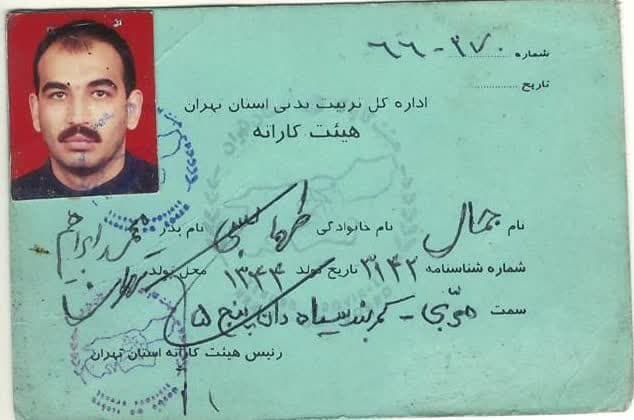 شماره ۳۷۰-۶۶
تاریخ
اداره کل تربیت بدنی استان تهران
هیئت کاراته
نام جمال نام خانوادگی طهماسبی نام پدر محمد ابراهیم
شماره شناسنامه ۳۱۴۲ تاریخ تولد ۱۳۴۴ محل تولد
سمت مربی - کمربند سیاه دان پنج ۵
رئیس هیئت کاراته استان تهران